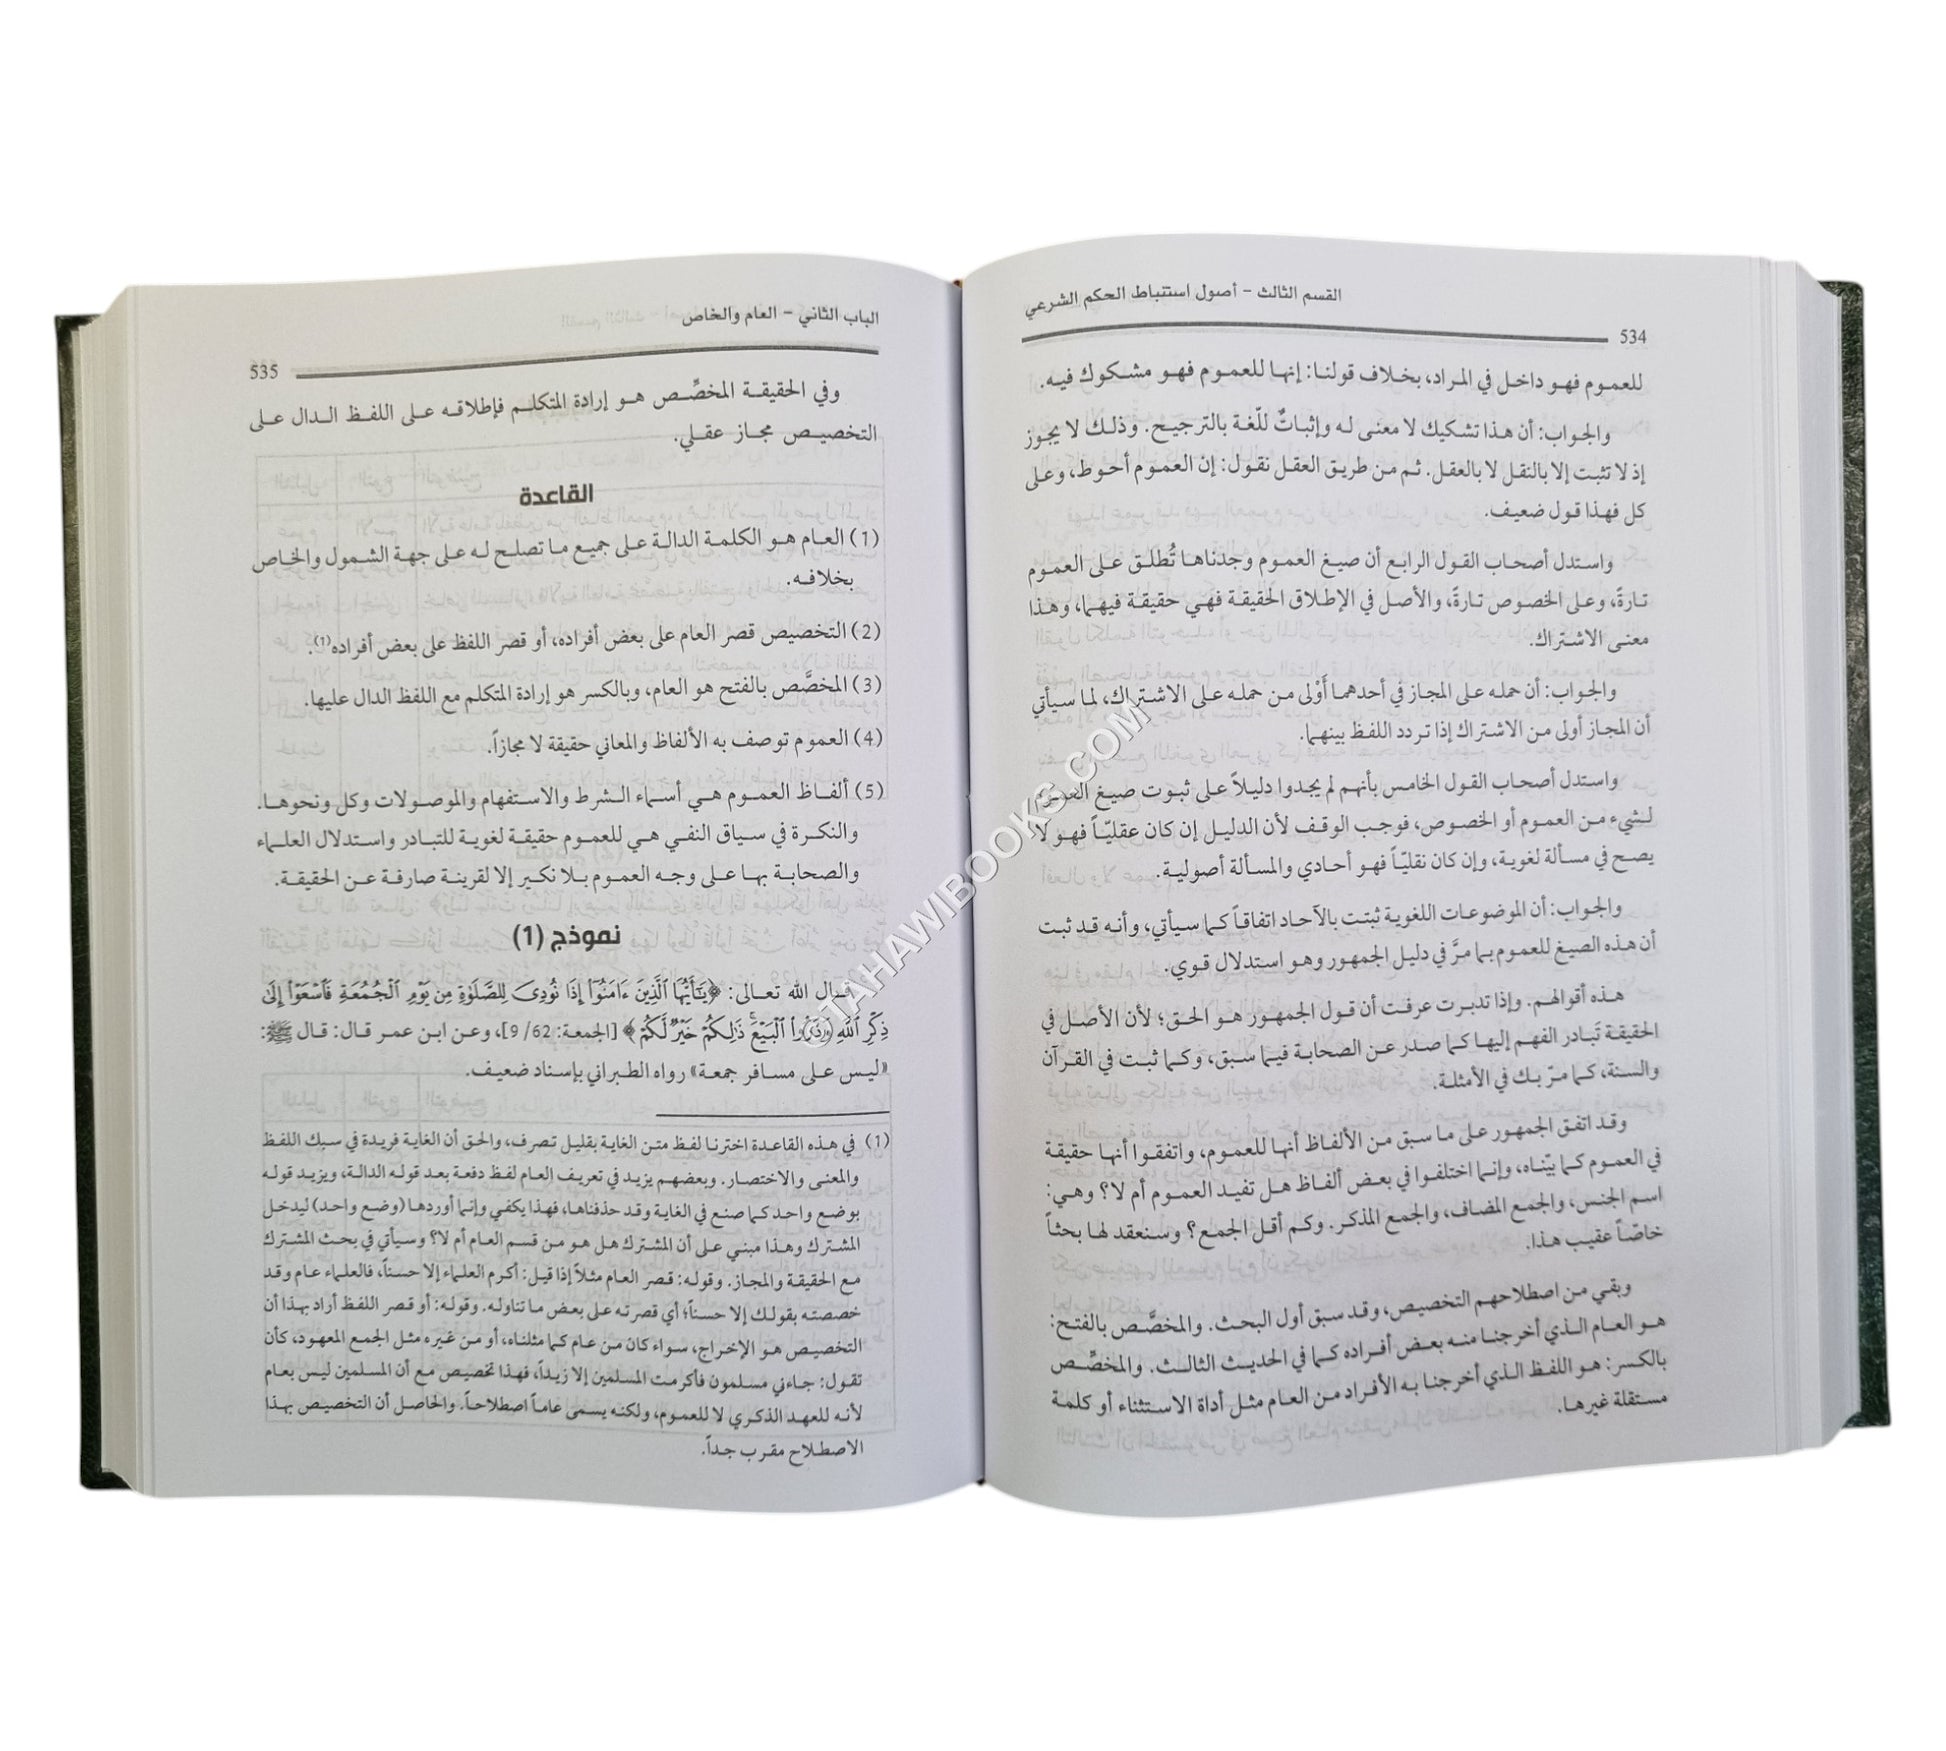 القسم الثالث - أصول استنباط الحكم الشرعي
534
للعموم فهو داخل في المراد، بخلاف قولنا: إنها للعموم فهو مشكوك فيه.
والجواب: أن هذا تشكيك لا معنى له وإثباتٌ للّغة بالترجيح. وذلك لا يجوز
إذ لا تثبت إلا بالنقل لا بالعقل. ثم من طريق العقل نقول: إن العموم أحوط، وعلى
كل فهذا قول ضعيف.
واستدل أصحاب القول الرابع أن صيغ العموم وجدناها تُطلق على العموم
تارةً، وعلى الخصوص تارةً، والأصل في الإطلاق الحقيقة فهي حقيقة فيهما، وهذا
معنى الاشتراك.
والجواب: أن حمله على المجاز في أحدهما أَوْلى من حمله على الاشتراك، لما سيأتي
أن المجاز أولى من الاشتراك إذا تردد اللفظ بينهما.
واستدل أصحاب القول الخامس بأنهم لم يجدوا دليلاً على ثبوت صيغ العموم
لشيء من العموم أو الخصوص، فوجب الوقف لأن الدليل إن كان عقليّاً فهو لا
يصح في مسألة لغوية، وإن كان نقليّاً فهو أحادي والمسألة أصولية.
والجواب: أن الموضوعات اللغوية ثبتت بالآحاد اتفاقاً كما سيأتي، وأنه قد ثبت
أن هذه الصيغ للعموم بما مرَّ في دليل الجمهور وهو استدلال قوي.
هذه أقوالهم. وإذا تدبرت عرفت أن قول الجمهور هو الحق؛ لأن الأصل في
الحقيقة تَبادر الفهم إليها كما صدر عن الصحابة فيما سبق، وكما ثبت في القرآن
والسنة، كما مرّ بك في الأمثلة.
وقد اتفق الجمهور على ما سبق من الألفاظ أنها للعموم، واتفقوا أنها حقيقة
في العموم كما بيّناه، وإنما اختلفوا في بعض ألفاظ هل تفيد العموم أم لا؟ وهي:
اسم الجنس، والجمع المضاف، والجمع المذكر. وكم أقل الجمع؟ وسنعقد لها بحثاً
خاصّاً عقيب هذا.
وبقي من اصطلاحهم التخصيص، وقد سبق أول البحث. والمخصَّص بالفتح:
هو العام الذي أخرجنا منه بعض أفراده كما في الحديث الثالث. والمخصِّص
بالكسر: هو اللفظ الذي أخرجنا به الأفراد من العام مثل أداة الاستثناء أو كلمة
مستقلة غيرها.
الباب الثاني - العام والخاص
535
وفي الحقيقة المخصِّص هو إرادة المتكلم فإطلاقه على اللفظ الدال على
التخصيص مجاز عقلي.
القاعدة
(1) العام هو الكلمة الدالة على جميع ما تصلح له على جهة الشمول والخاص
بخلافه.
(2) التخصيص قصر العام على بعض أفراده، أو قصر اللفظ على بعض أفراده(1).
(3) المخصَّص بالفتح هو العام، وبالكسر هو إرادة المتكلم مع اللفظ الدال عليها.
(4) العموم توصف به الألفاظ والمعاني حقيقة لا مجازاً.
(5) ألفاظ العموم هي أسماء الشرط والاستفهام والموصولات وكل ونحوها.
والنكرة في سياق النفي هي للعموم حقيقة لغوية للتبادر واستدلال العلماء
والصحابة بها على وجه العموم بلا نكير إلا لقرينة صارفة عن الحقيقة.
نموذج (1)
قال الله تعالى: ﴿يَٰٓأَيُّهَا ٱلَّذِينَ ءَامَنُوٓاْ إِذَا نُودِىَ لِلصَّلَوٰةِ مِن يَوْمِ ٱلْجُمُعَةِ فَٱسْعَوْاْ إِلَىٰ
ذِكْرِ ٱللَّهِ وَذَرُواْ ٱلْبَيْعَ ۚ ذَٰلِكُمْ خَيْرٌ لَّكُمْ﴾ [الجمعة: 62/ 9]، وعن ابن عمر قال: قال ﷺ:
«ليس على مسافر جمعة» رواه الطبراني بإسناد ضعيف.
(1) في هذه القاعدة اخترنا لفظ متن الغاية بقليل تصرف، والحق أن الغاية فريدة في سبك اللفظ
والمعنى والاختصار. وبعضهم يزيد في تعريف العام لفظ دفعة بعد قوله الدالة، ويزيد قوله
بوضع واحد كما صنع في الغاية وقد حذفناها، فهذا يكفي وإنما أوردها (وضع واحد) ليدخل
المشترك وهذا مبني على أن المشترك هل هو من قسم العام أم لا؟ وسيأتي في بحث المشترك
مع الحقيقة والمجاز. وقوله: قصر العام مثلاً إذا قيل: أكرم العلماء إلا حسناً، فالعلماء عام وقد
خصصته بقولك إلا حسناً؛ أي قصرته على بعض ما تناوله. وقوله: أو قصر اللفظ أراد بهذا أن
التخصيص هو الإخراج، سواء كان من عام كما مثلناه، أو من غيره مثل الجمع المعهود، كأن
تقول: جاءني مسلمون فأكرمت المسلمين إلا زيداً، فهذا تخصيص مع أن المسلمين ليس بعام
لأنه للعهد الذكري لا للعموم، ولكنه يسمى عاماً اصطلاحاً. والحاصل أن التخصيص بهذا
الاصطلاح مقرب جداً.
©TAHAWIBOOKS.COM